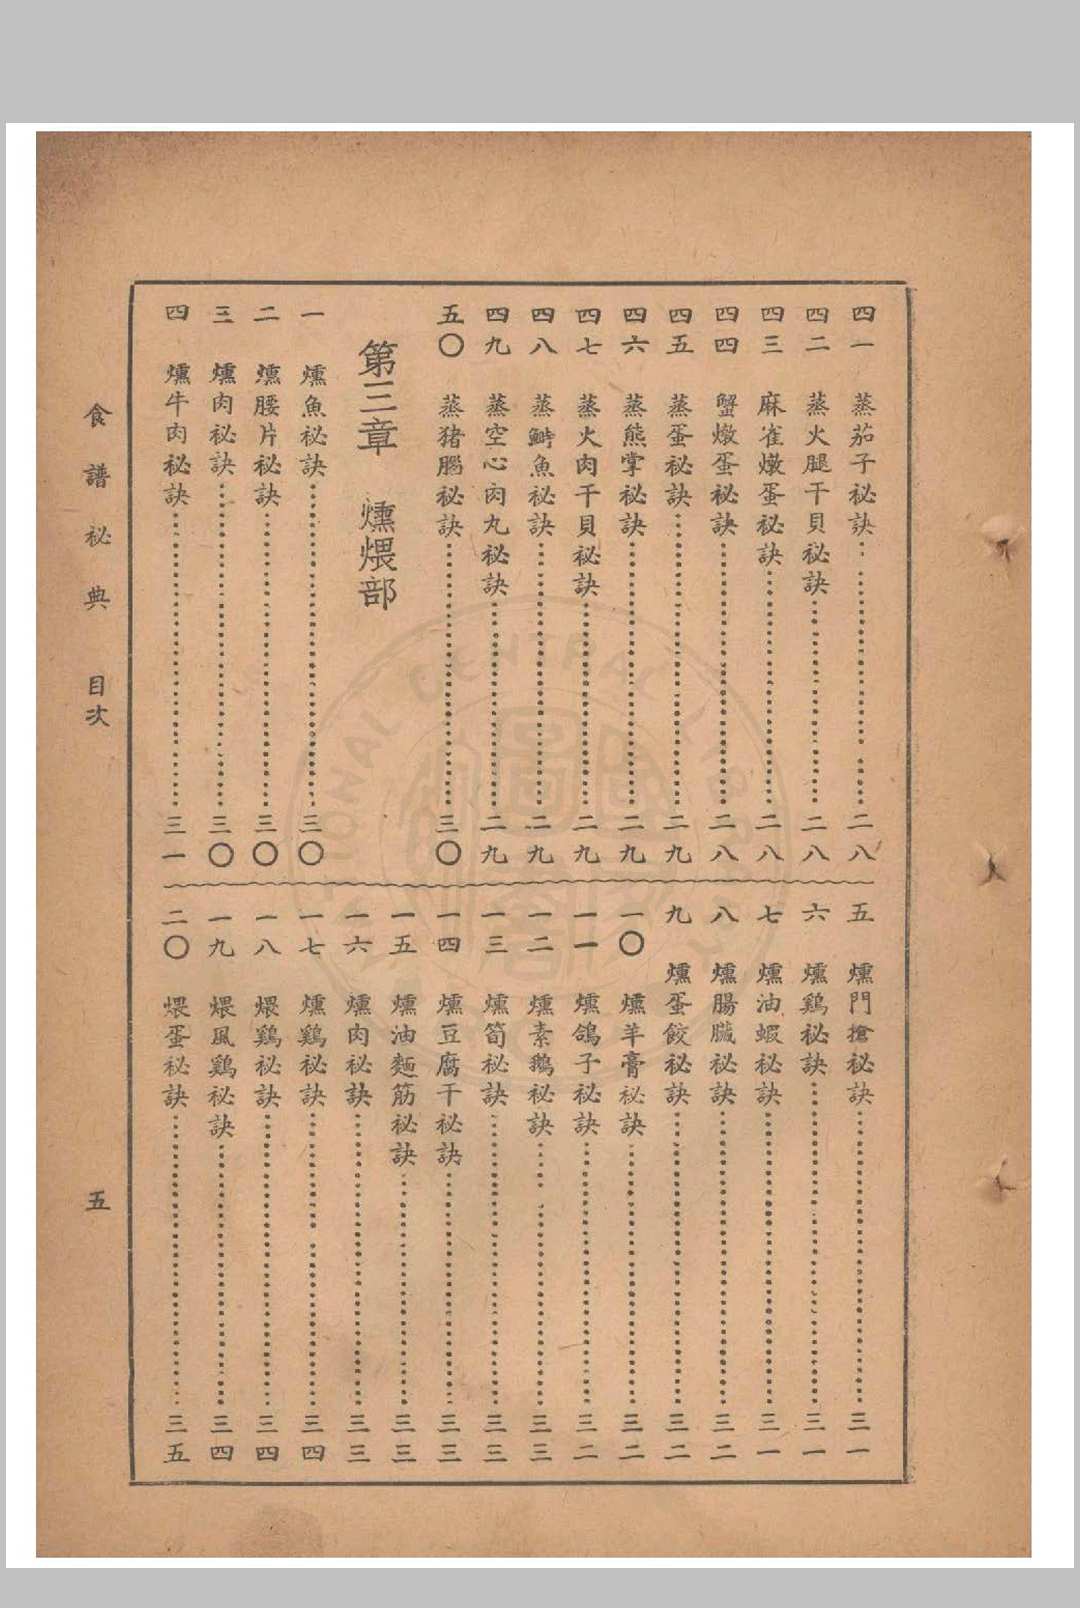 四一　蒸茄子秘訣……二八
四二　蒸火腿干貝秘訣……二八
四三　麻雀燉蛋秘訣……二八
四四　蟹燉蛋秘訣……二八
四五　蒸蛋秘訣……二九
四六　蒸熊掌秘訣……二九
四七　蒸火肉干貝秘訣……二九
四八　蒸鰣魚秘訣……二九
四九　蒸空心肉丸秘訣……二九
五〇　蒸猪腦秘訣……三〇
第三章　燻煨部
一　燻魚秘訣……三〇
二　燻腰片秘訣……三〇
三　燻肉秘訣……三〇
四　燻牛肉秘訣……三一
五　燻門搶秘訣……三一
六　燻鷄秘訣……三一
七　燻油蝦秘訣……三一
八　燻腸臟秘訣……三二
九　燻蛋餃秘訣……三二
一〇　燻羊膏秘訣……三二
一一　燻鴿子秘訣……三二
一二　燻素鵝秘訣……三三
一三　燻筍秘訣……三三
一四　燻豆腐干秘訣……三三
一五　燻油麵筋秘訣……三三
一六　燻肉秘訣……三三
一七　燻鷄秘訣……三四
一八　煨鷄秘訣……三四
一九　煨風鷄秘訣……三四
二〇　煨蛋秘訣……三五
食譜秘典　目次
五